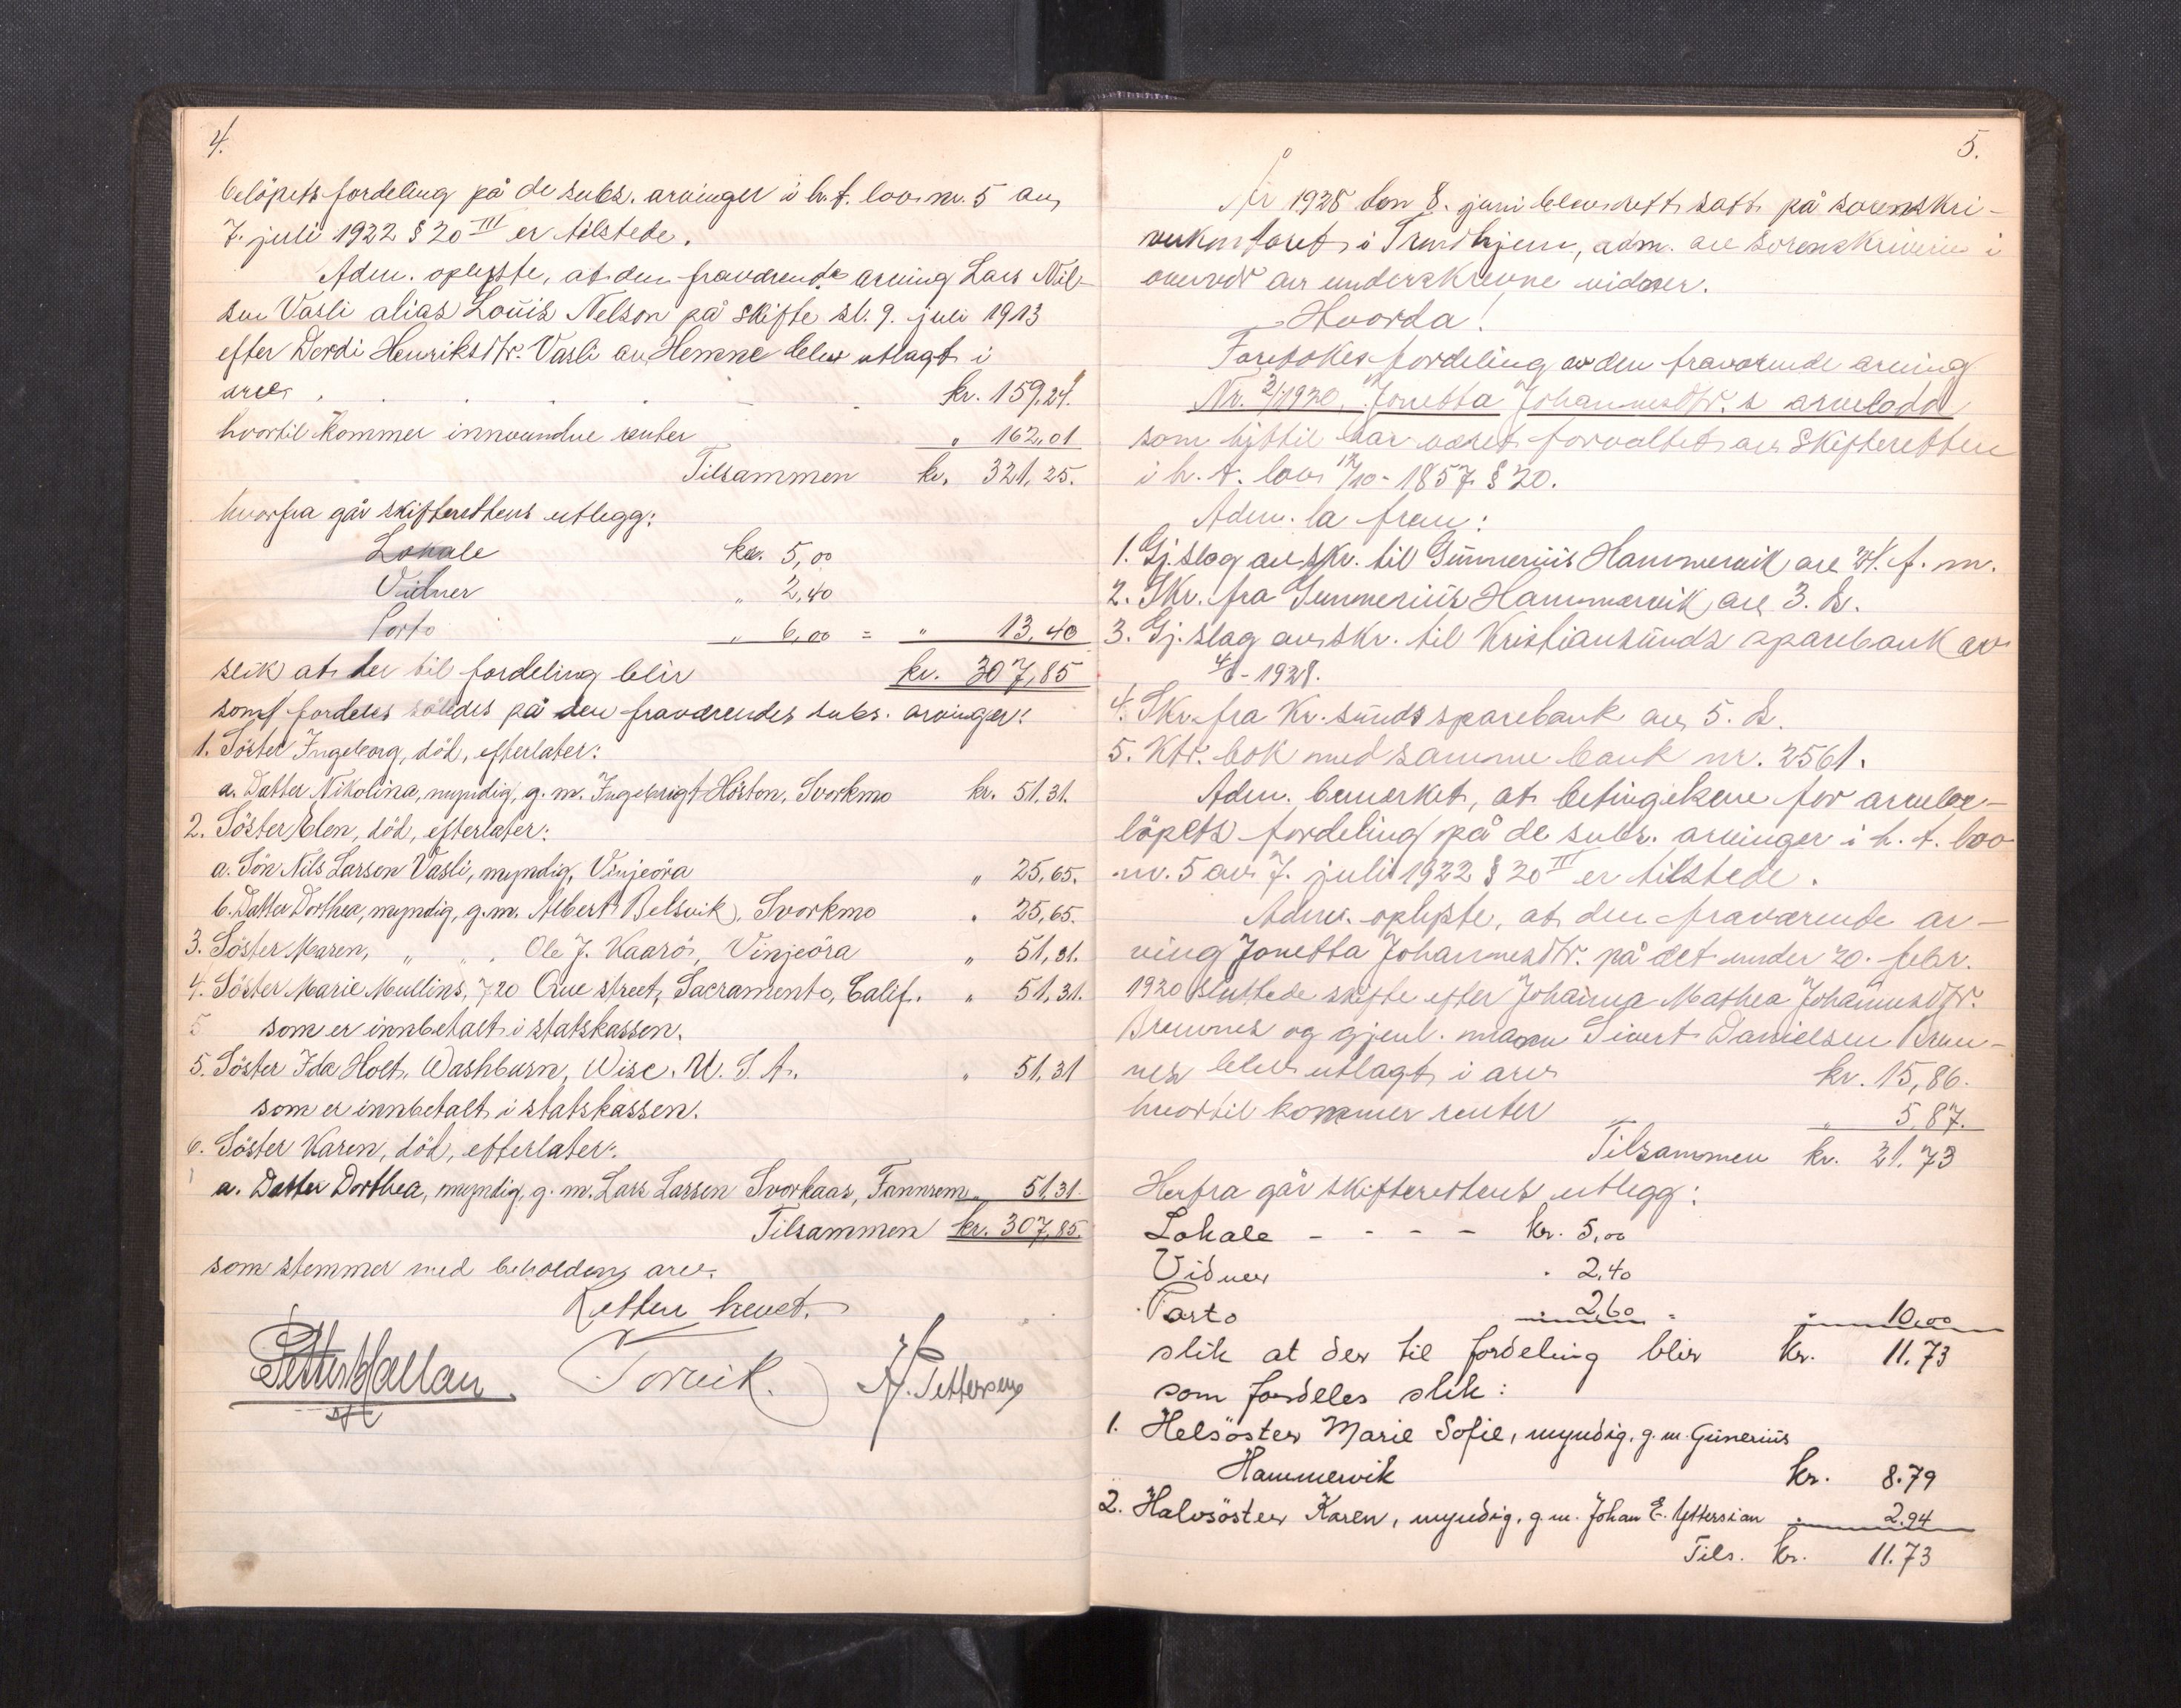 4.
belöpets fordeling på de subs. arvinger i h.t. lov nr. 5 av
7. juli 1922 § 20 III er tilstede.
Adm. oplyste, at den fraværende arving Lars Nil-
sen Vasli alias Louis Nelson på skifte sl. 9. juli 1913
efter Dordi Henriksdtr. Vasli av Hemne blev utlagt i
arv . . . . . kr. 159,24.
hvortil kommer innvundne renter " 162,01
Tilsammen kr. 321,25.
hvorfra går skifterettens utlegg:
Lokale kr. 5,00
Vidner " 2,40
Porto " 6,00 = " 13,40
slik at der til fordeling blir kr. 307,85
som fordeles således på den fraværendes subs. arvinger:
1. Söster Ingeborg, död, efterlater:
a. Datter Nikolina, myndig, g. m. Ingebrigt Höston, Svorkmo kr. 51,31.
2. Söster Elen, död, efterlater:
a. Sön Nils Larsen Vasli, myndig, Vinjeöra " 25,65.
b. Datter Dorthea, myndig, g.m. Albert Belsvik, Svorkmo " 25,65.
3. Söster Maren, " " " Ole J. Kaarö, Vinjeöra " 51,31.
4. Söster Marie Mullins, 720 Que street, Sacramento, Calif. " 51,31.
5 som er innbetalt i statskassen.
5. Söster Ida Holt, Washburn, Wisc. U. S. A. " 51,31
som er innbetalt i statskassen.
6. Söster Karen, död, efterlater:
a. Datter Dorthea, myndig, g. m. Lars Larsen Svorkaas, Fannrem " 51,31.
Tilsammen kr. 307,85.
som stemmer med beholden arv.
Retten hevet.
Petter Hallan Torvik. H. Pettersen
sft
5.
År 1928 den 8. juni blev rett satt på sorenskri-
verkontoret i Trondhjem, adm. av sorenskriveren i
overvær av underskrevne vidner.
Hvorda!
Foretokes fordeling av den fraværende arving
Nr. 2/1920, Jonetta Johannesdtr.s arvelodd
som hittil har været forvaltet av skifteretten
i h. t. lov 12/10-1857 § 20.
Adm. la frem:
1. Gj.slag av skr. til Günnerius Hammervik av 24. f. m.
2. Skr. fra Gunnerius Hammervik av 3. ds.
3. Gj.slag av skr. til Kristiansunds sparebank av
4/6-1928.
4. Skr. fra Kr.sunds sparebank av 5. ds.
5. Ktr. bok med samme bank nr. 2561.
Adm. bemerket, at betingelsene for arvebe-
löpets fordeling på de subs. arvinger i h. t. lov
nr. 5 av 7. juli 1922 § 20 III er tilstede.
Adm. oplyste, at den fraværende ar-
ving Jonetta Johannesdtr. på det under 20. febr.
1920 sluttede skifte efter Johanna Mathea Johannesdtr.
Bremnes og gjenl. mann Sivert Danielsen Brem-
nes blev utlagt i arv kr. 15,86.
hvortil kommer renter " 5,87.
Tilsammen kr. 21.73
Herfra går skifterettens utlegg:
Lokale - - - - kr. 5,00
Vidner " 2,40
Porto " 2,60 = " 10,00
slik at der til fordeling blir kr. 11.73
som fordeles slik:
1. Helsöster Marie Sofie, myndig, g. m. Günerius
Hammervik kr. 8.79
2. Halvsöster Karen, myndig, g. m. Johan E. Yttersian " 2.94
Tils. kr. 11.73